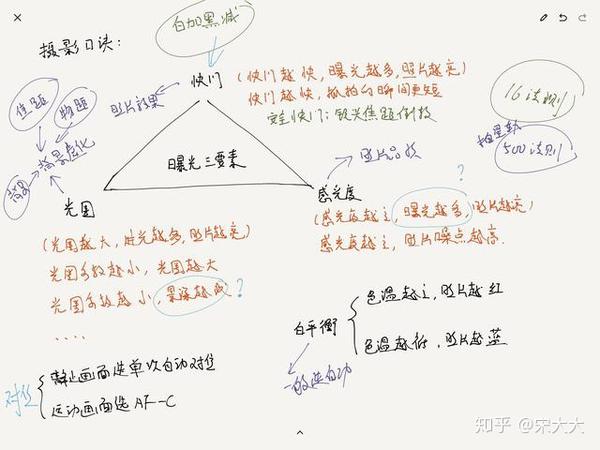 白加黑减
摄影口诀：
快门
(快门越快，曝光越多，照片越亮)
快门越快，抓拍的瞬间更短
安全快门：
焦距倒数
16法则
拍星轨
500法则
焦距
物距
照片效果
背景虚化
曝光三要素
照片品质
光圈
感光度
?
(感光度越高，曝光越多，照片越亮)
感光度越高，照片噪点越高.
(光圈越大，进光越多，照片越亮)
光圈系数越小，光圈越大
光圈系数越小，景深越浅?
....
白平衡
色温越高，照片越红
色温越低，照片越蓝
对焦
静止画面选单次自动对焦
运动画面选AF-C
自动
知乎 @宋大大